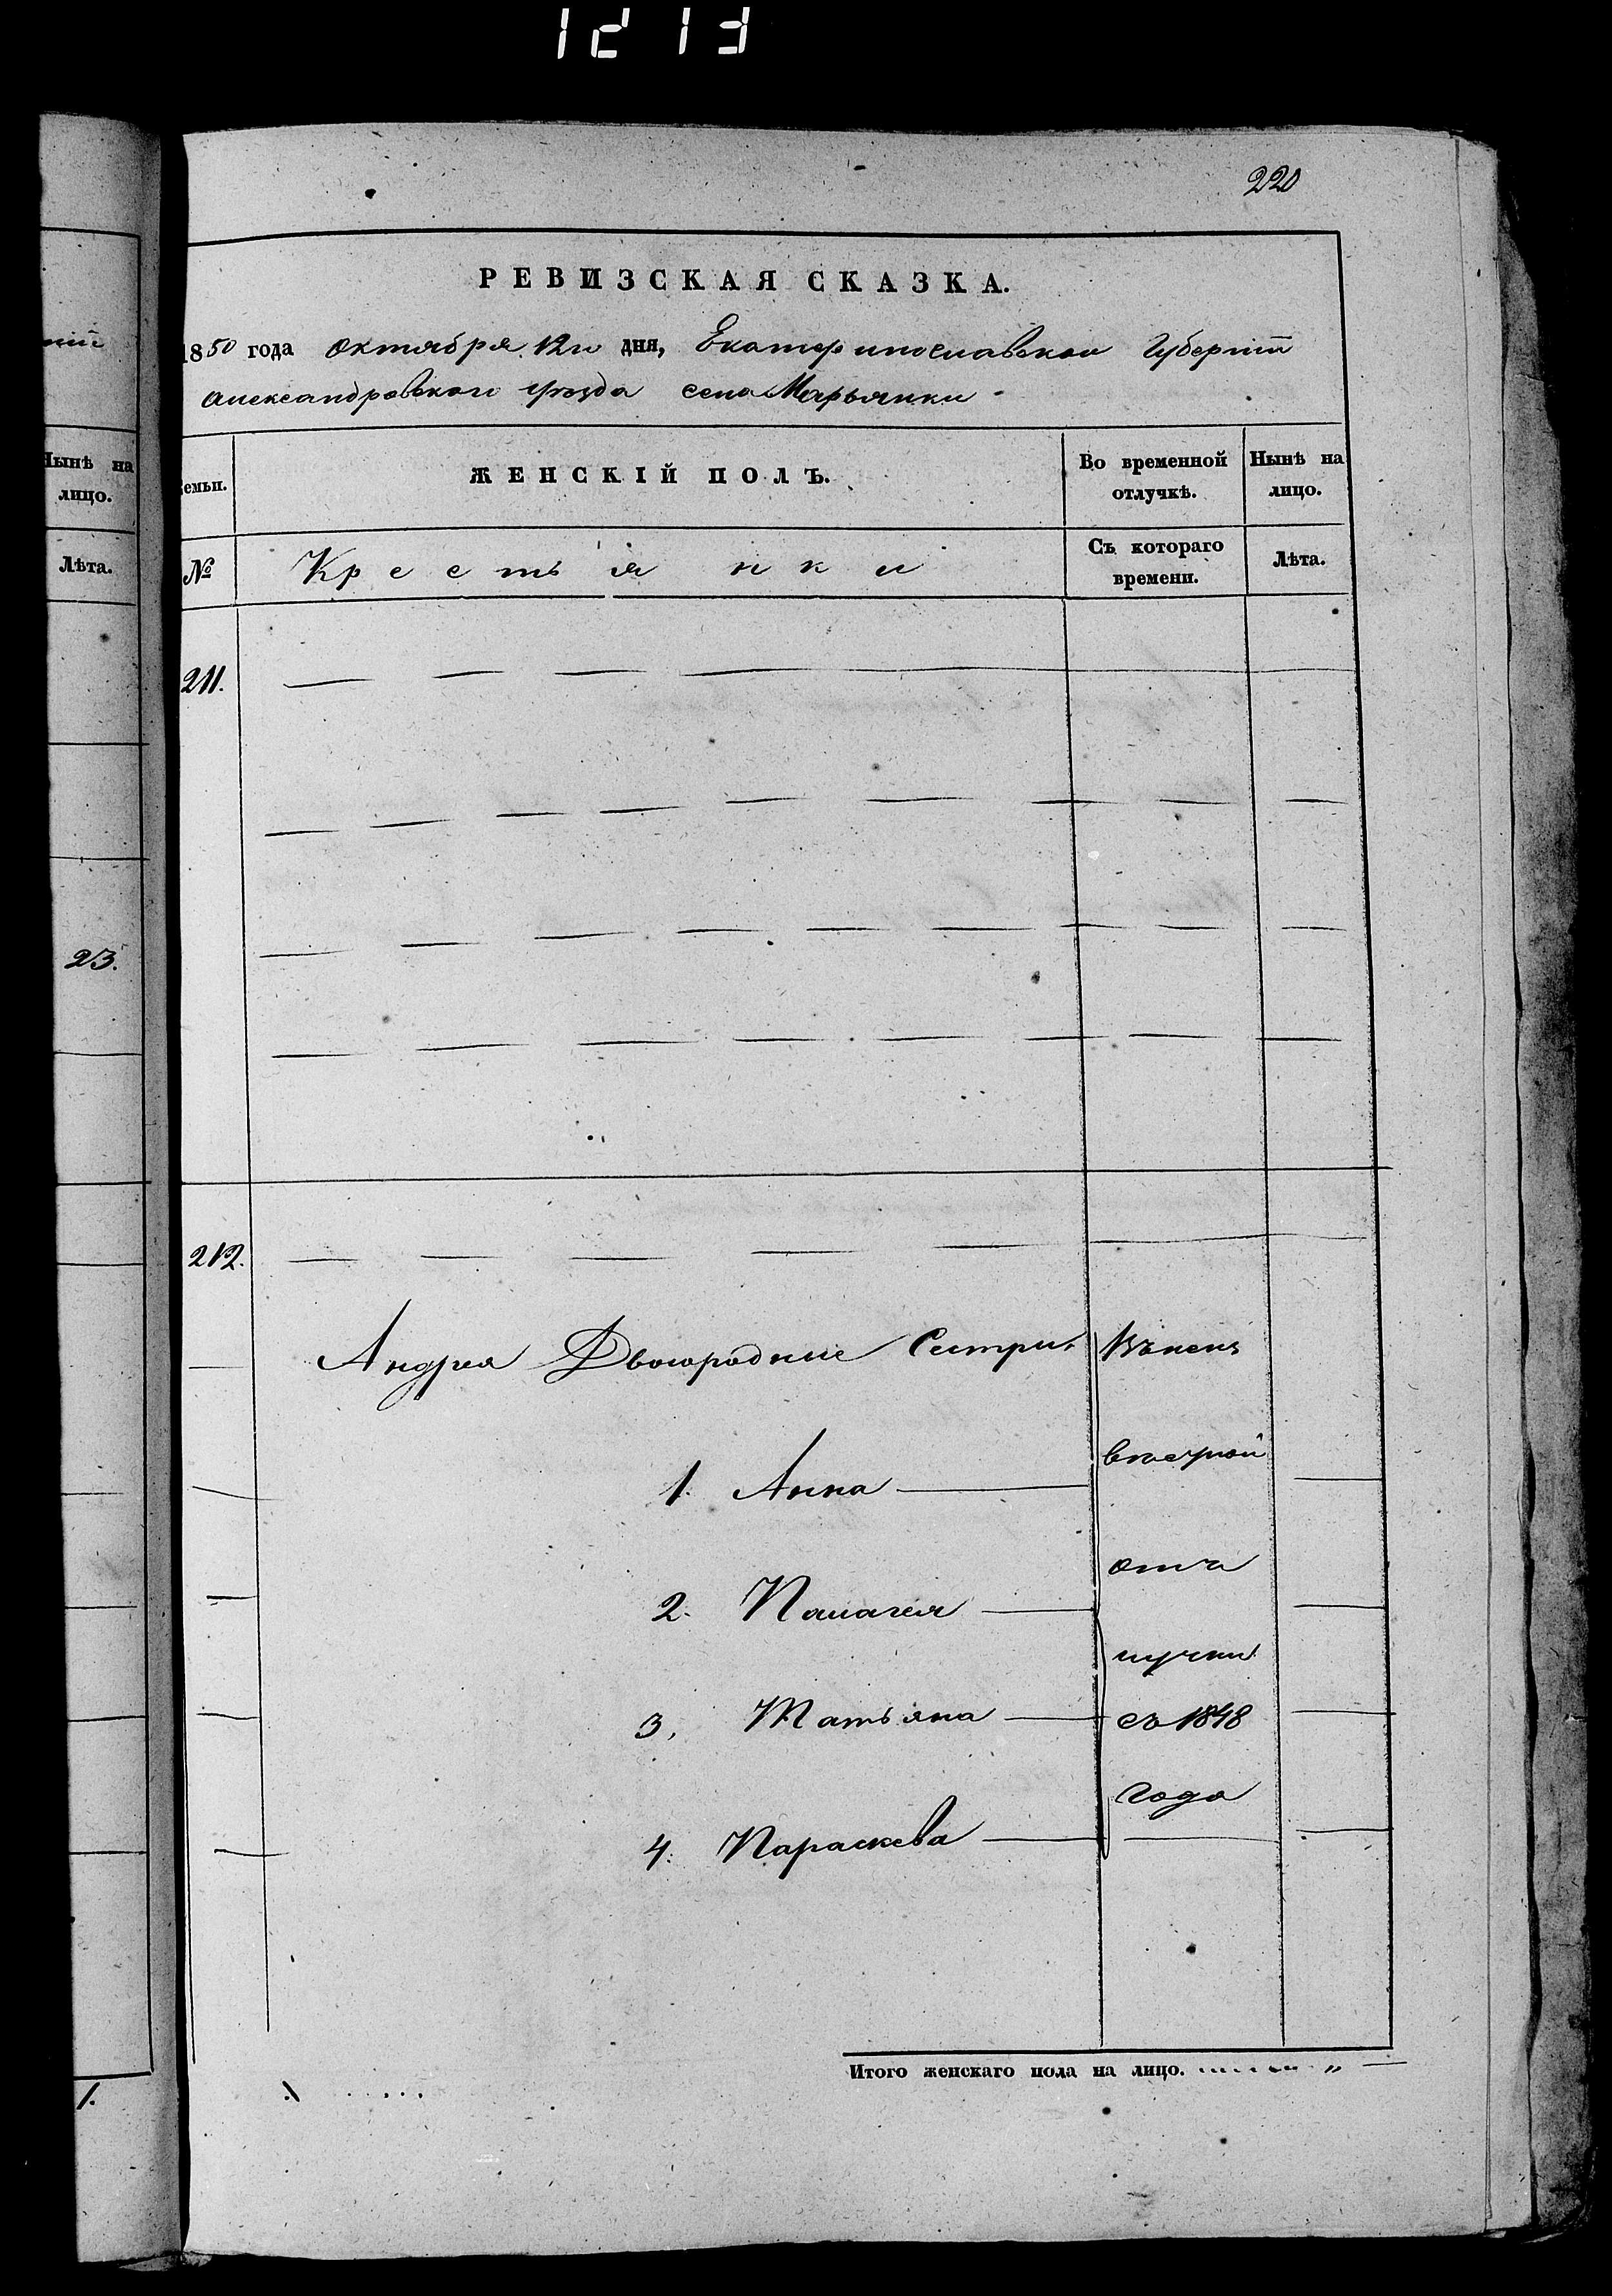 1213
220
РЕВИЗСКАЯ СКАЗКА.
1850 года Октября 12го дня, Екатеринославской Губерніи
Александровскаго уѣзда села Марьянки
Нынѣ на лицо.
емьи.
ЖЕНСКІЙ ПОЛЪ.
Во временной отлучкѣ.
Нынѣ на лицо.
Лѣта.
№
Крестьянки
Съ котораго времени.
Лѣта.
211.
23.
212.
Андрея Двоюродные Сестры
1. Анна
2. Палагея
3, Татьяна
4. Параскева
отл
лучки
съ 1848
года
Итого женскаго пола на лицо. "
1.